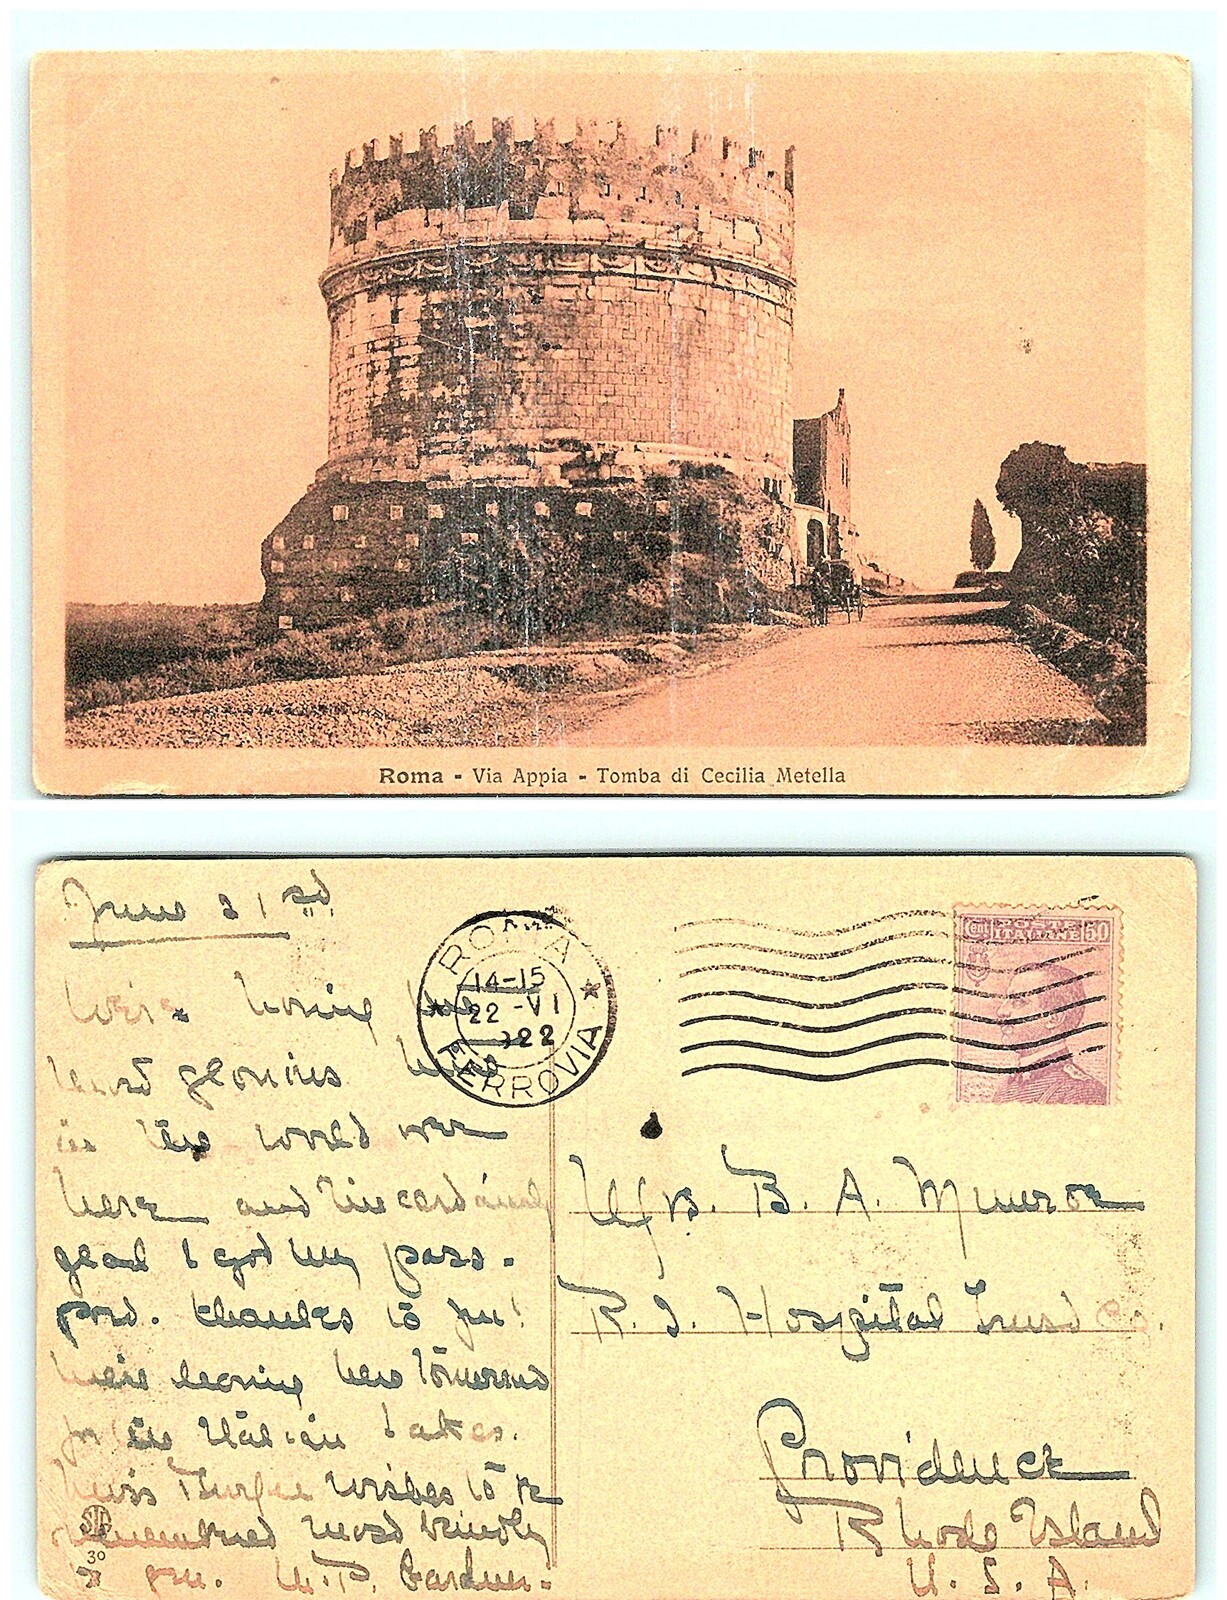 Roma - Via Appia - Tomba di Cecilia Metella
June 21st
We're having the
most glorious time
in the world over
here and I'm certainly
glad I got my pass-
port. thanks to you!
We're leaving here tomorrow
for the Italian Lakes.
Miss wishes to be
remembered most kindly
you. M. P. Gardner.
ROMA
14-15
22-VI
22
FERROVIA
Cent POSTE
ITALIANE 50
Mrs. B. A. Munroe
R. I. Hospital Trust Co.
Providence
Rhode Island
U. S. A.
30